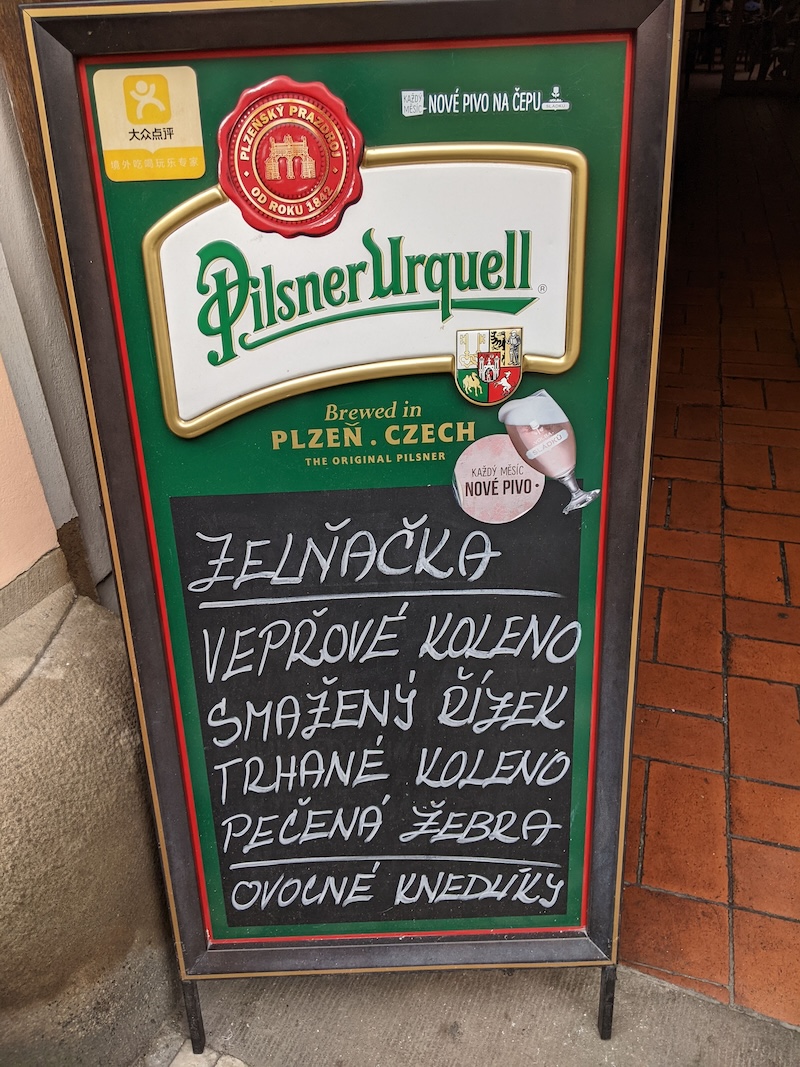 大众点评
境外吃喝玩乐专家
PLZEŇSKÝ PRAZDROJ
OD ROKU 1842
KAŽDÝ
MĚSÍC
NOVÉ PIVO NA ČEPU
SLADKU
Pilsner Urquell ®
Brewed in
PLZEŇ . CZECH
THE ORIGINAL PILSNER
SLADKU
KAŽDÝ MĚSÍC
NOVÉ PIVO
ZELŇAČKA
VEPŘOVÉ KOLENO
SMAŽENÝ ŘÍZEK
TRHANÉ KOLENO
PEČENÁ ŽEBRA
OVOCNÉ KNEDLÍKY